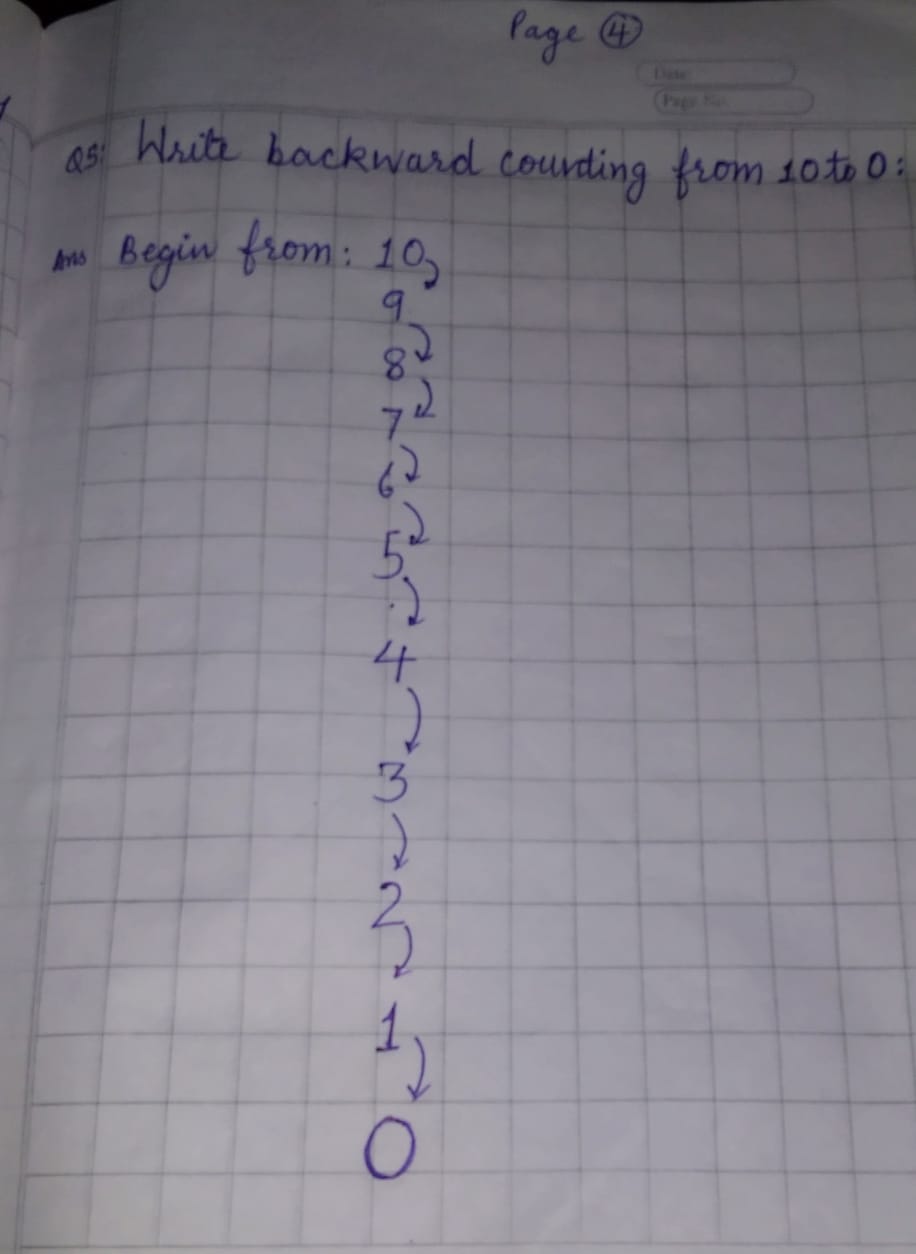 Page ④
Date:
Page No.
Q5: Write backward counting from 10 to 0:
Ans Begin from: 10
9
8
7
6
5
4
3
2
1
0